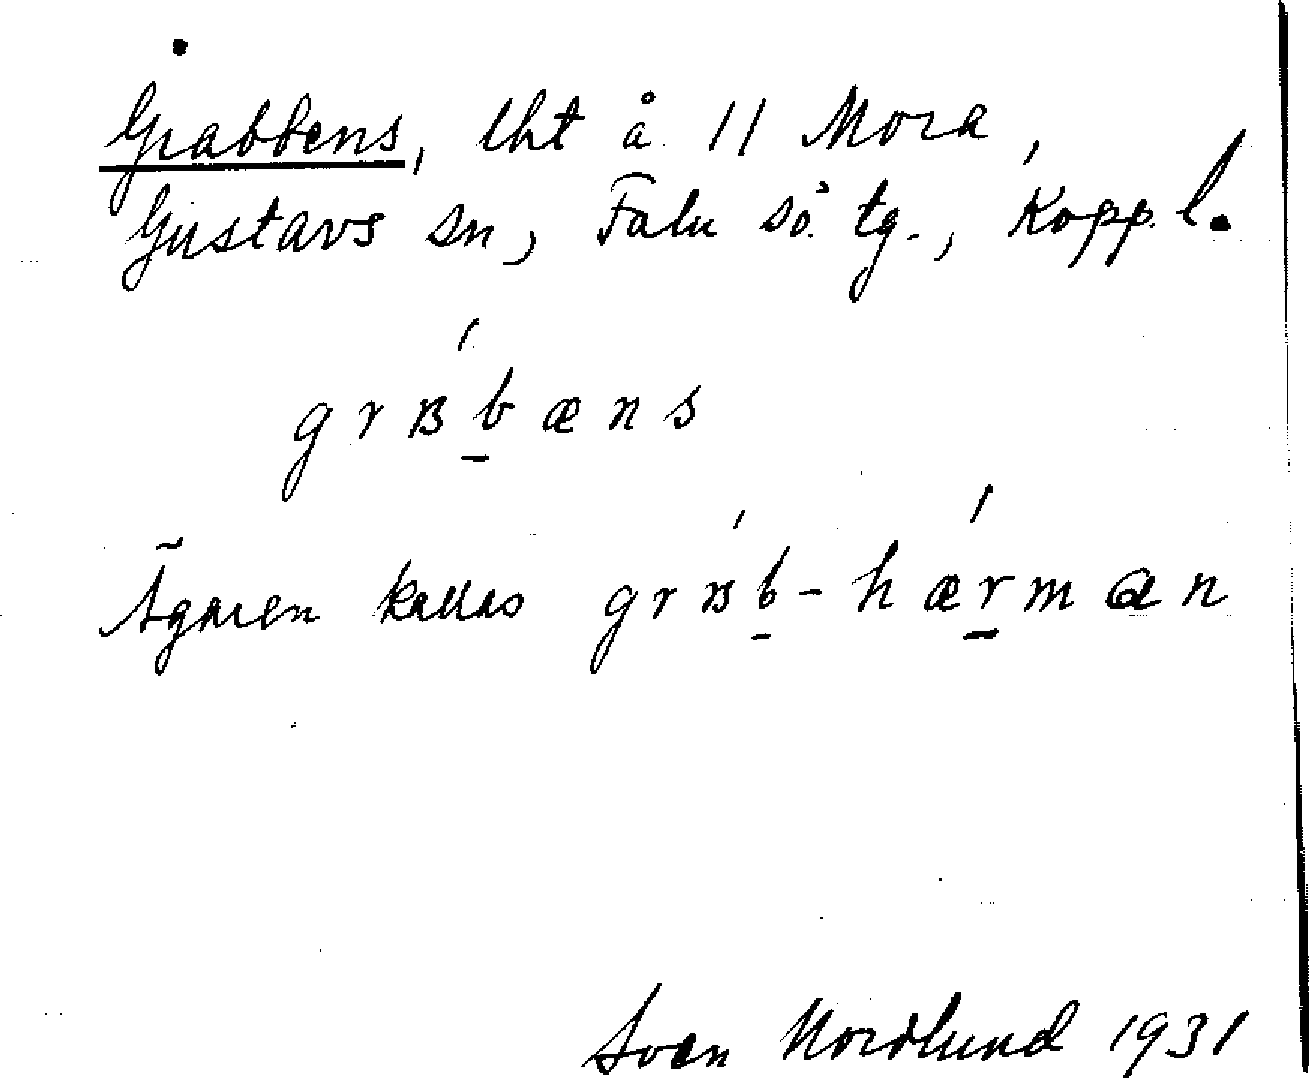 Grabbens, lht å 11 Mora,
Gustavs sn, Falu sö. tg., Kopp. l.
grɐ́b̲æns
Ägaren kallas grɐ́b̲-hǽr̲man
Sven Nordlund 1931